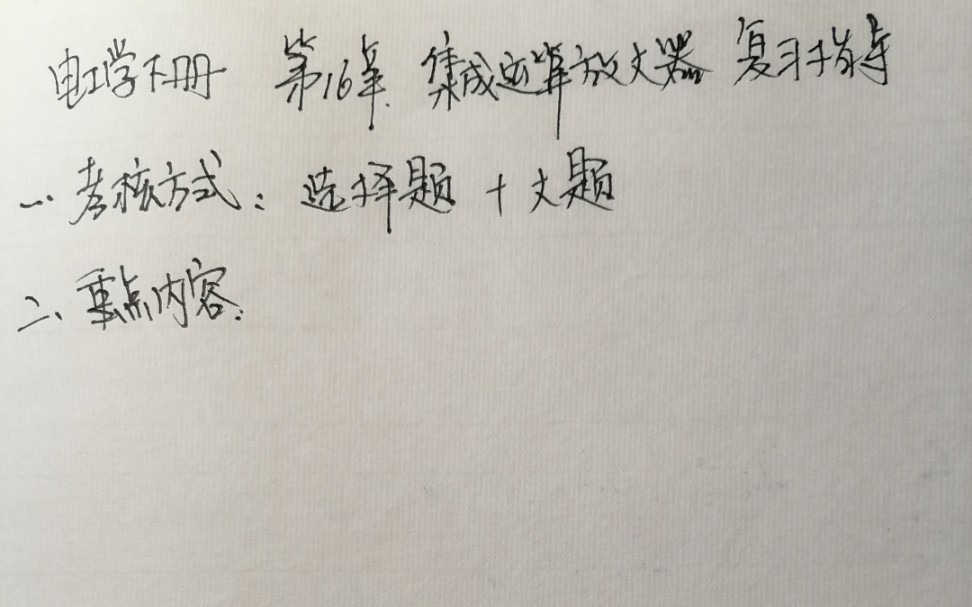 电工学下册 第16章 集成运算放大器 复习指导
一、考核方式：选择题 + 大题
二、重点内容：